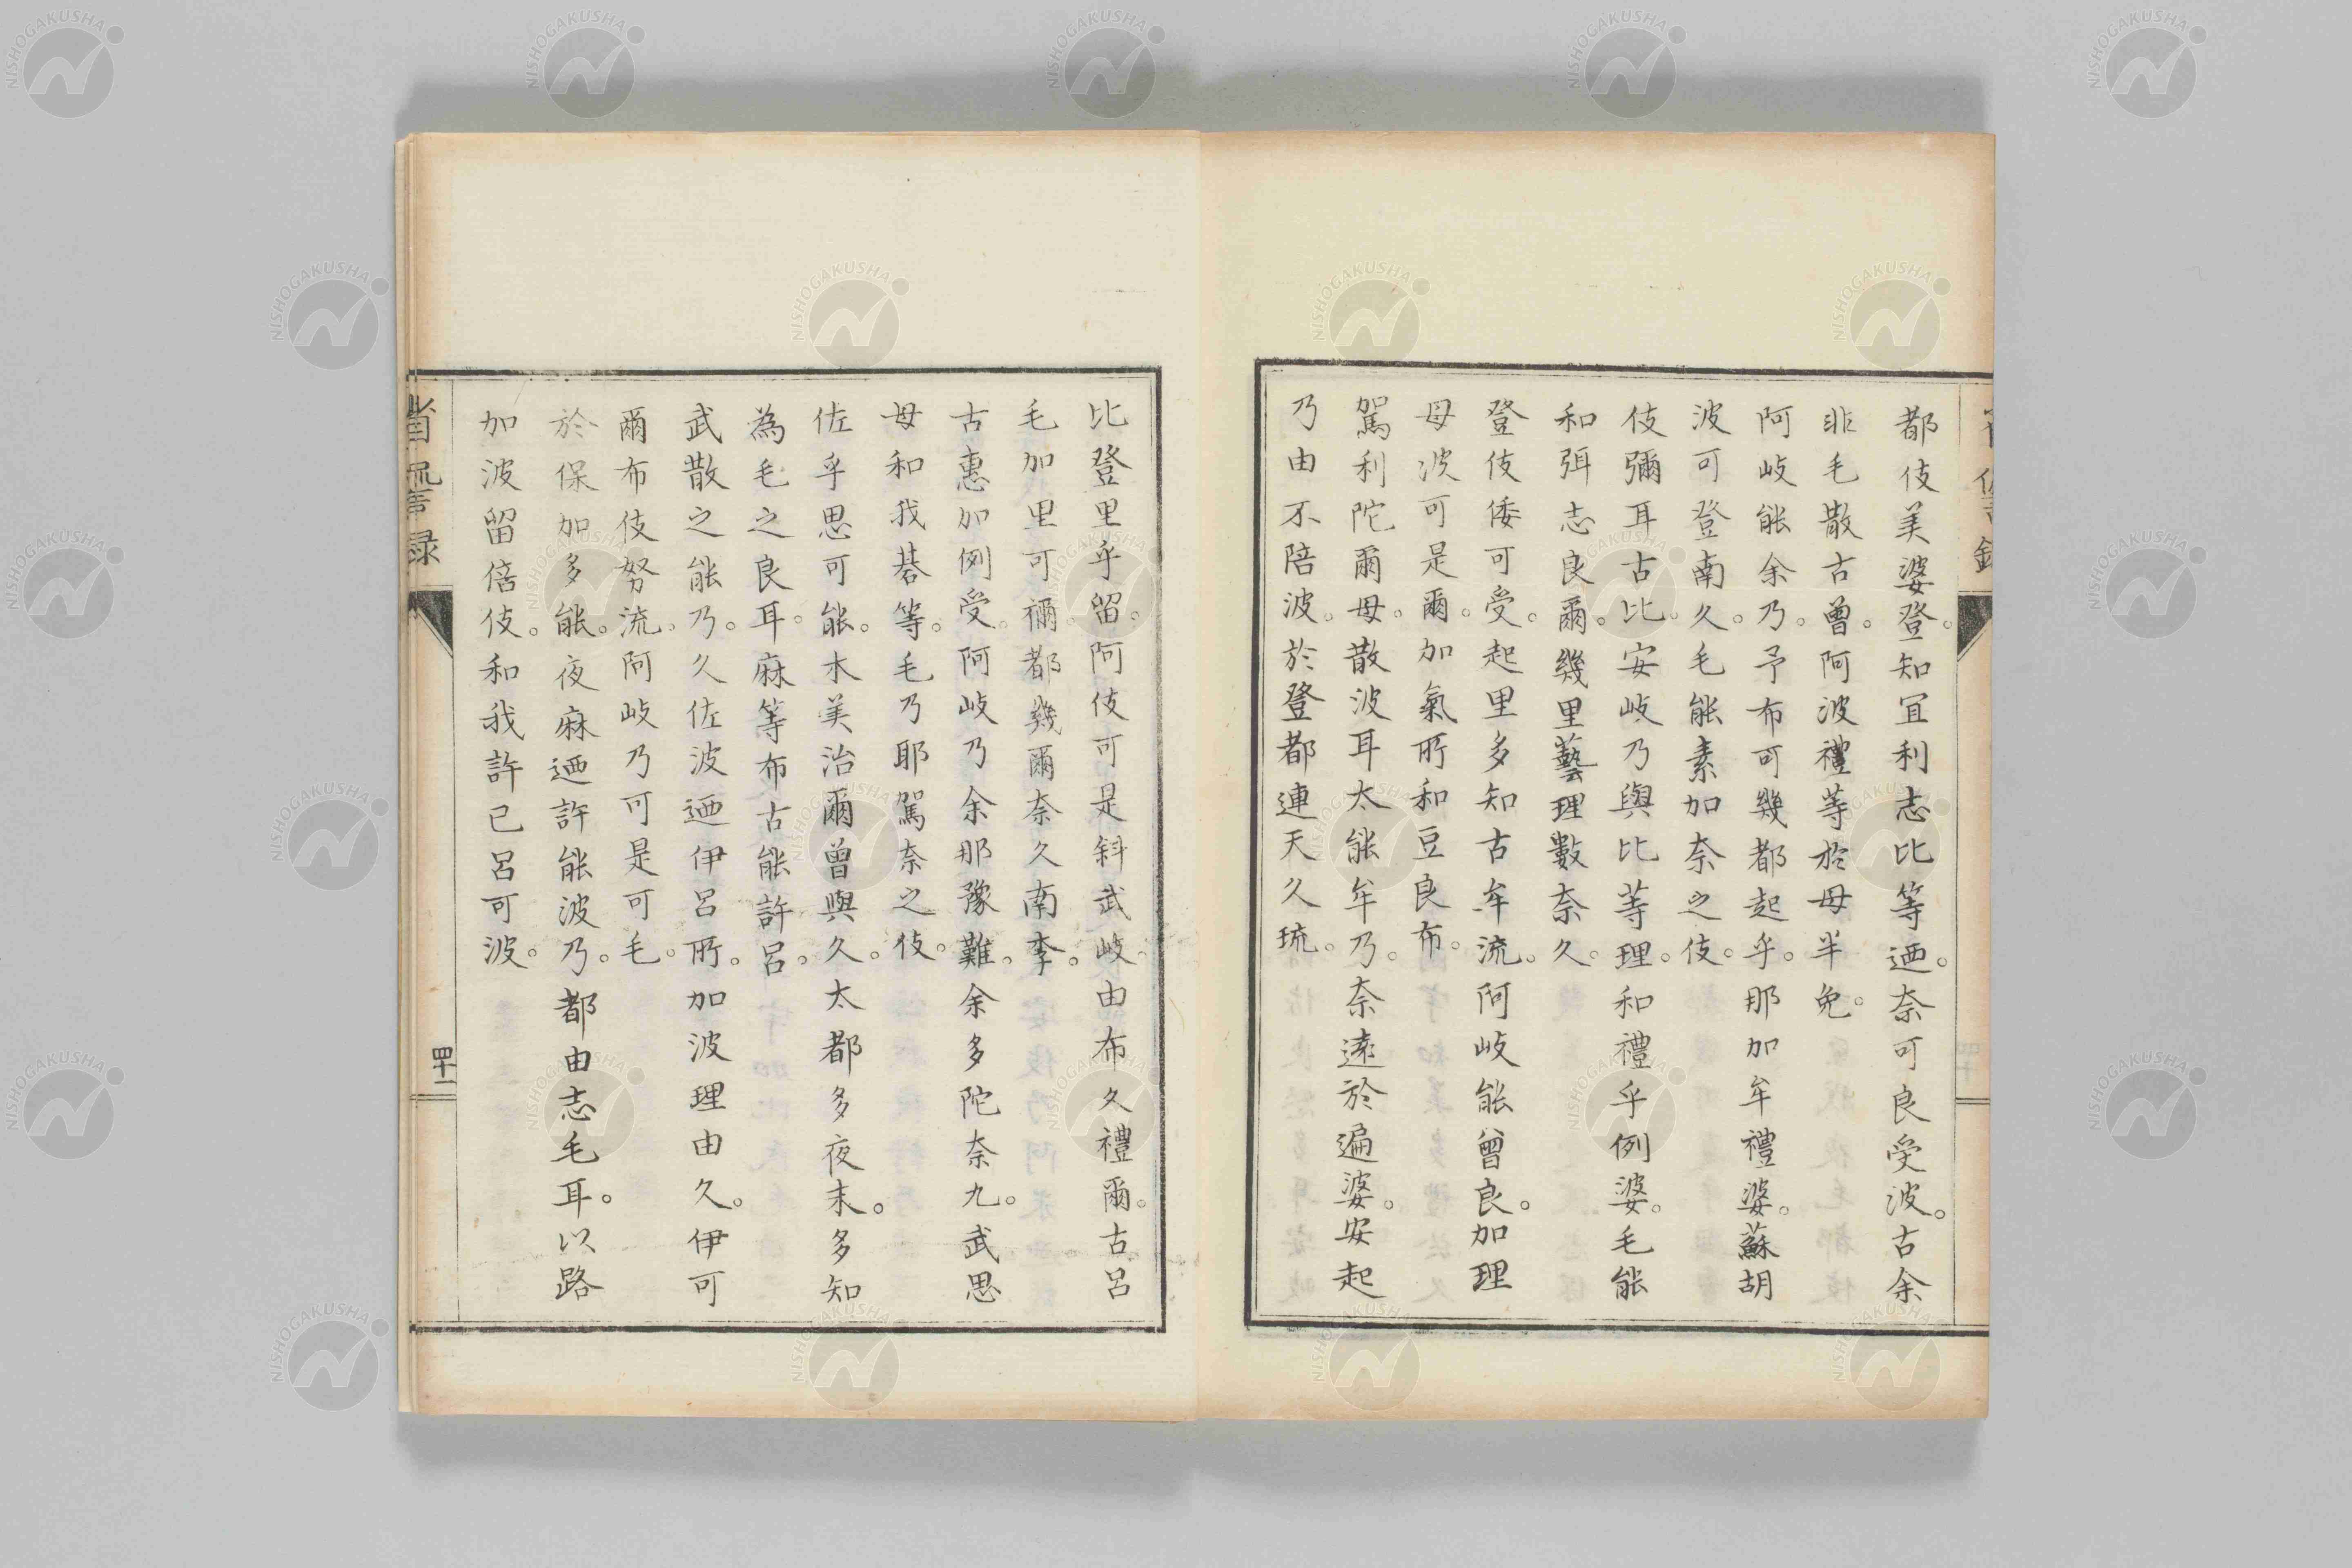 都伎美婆登。知冝利志比等迺。奈可良受波。古余
非毛散古曾。阿波禮等於母半免。
阿岐能余乃。予布可幾都起乎。那加牟禮婆。蘇胡
波可登南久。毛能素加奈之伎。
伎彌耳古比。安岐乃與比等理。和禮乎例婆。毛能
和弭志良爾。幾里藝理數奈久。
登伎倭可受。起里多知古牟流。阿岐能曾良。加理
母波可是爾。加氣所和豆良布。
駕利陀爾母。散波耳太能牟乃。奈遠於遍婆。安起
乃由不陪波。於登都連天久琉。
比登里乎留。阿伎可是斜武岐。由布久禮爾。古呂
毛加里可禰。都幾爾奈久南李。
古惠加例受。阿岐乃余那豫難。余多陀奈九。武思
母和我碁等。毛乃耶駕奈之伎。
佐乎思可能。木美治爾曾與久。太都多夜末。多知
為毛之良耳。麻等布古能許呂。
武散之能乃。久佐波迺伊呂所。加波理由久。伊可
爾布伎努流。阿岐乃可是可毛。
於保加多能。夜麻迺許能波乃。都由志毛耳。以路
加波留倍伎。和我許已呂可波。
省諐録
四十一
NISHOGAKUSHA